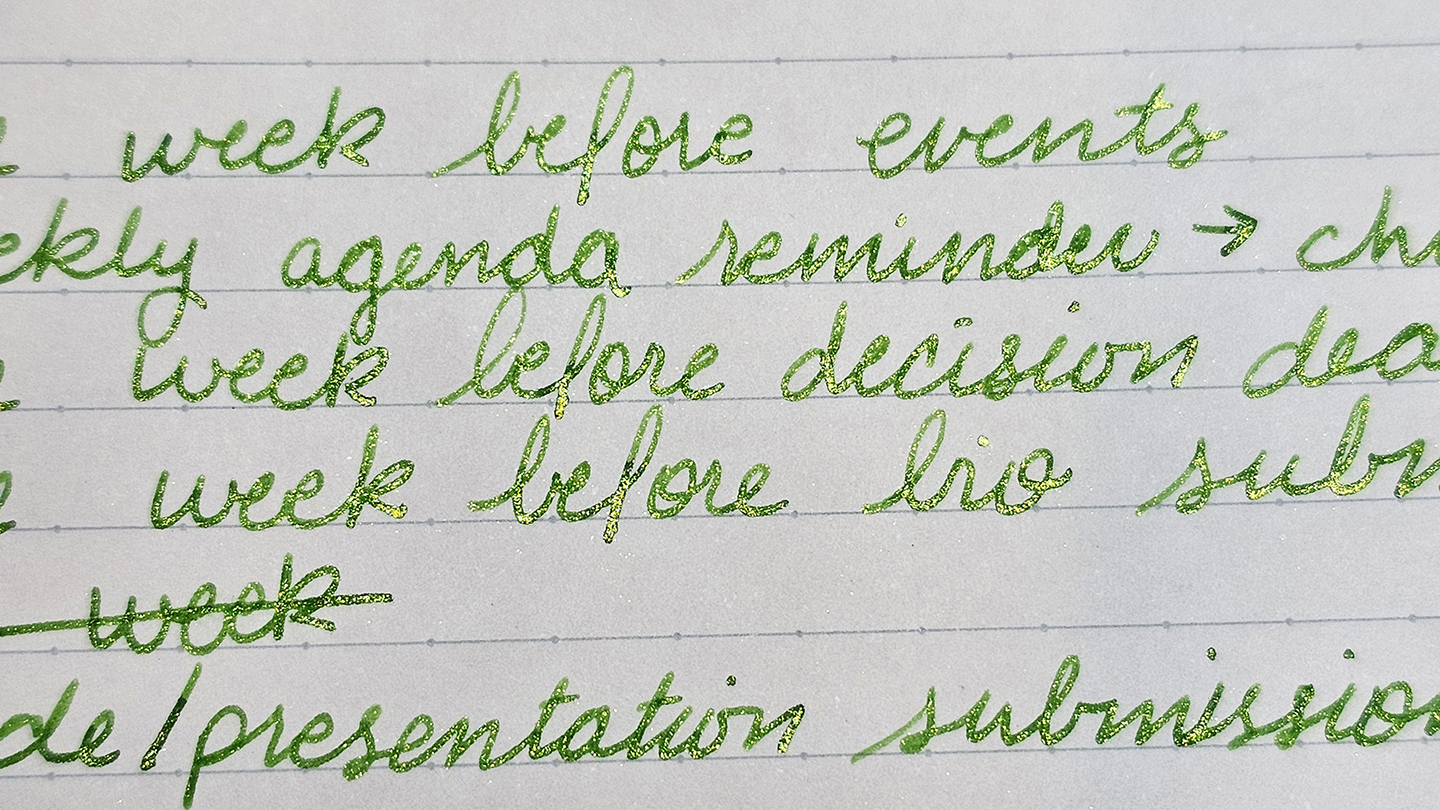 week before events
ekly agenda reminder → ch
week before decision dea
week before bio subm
week
de/presentation submission